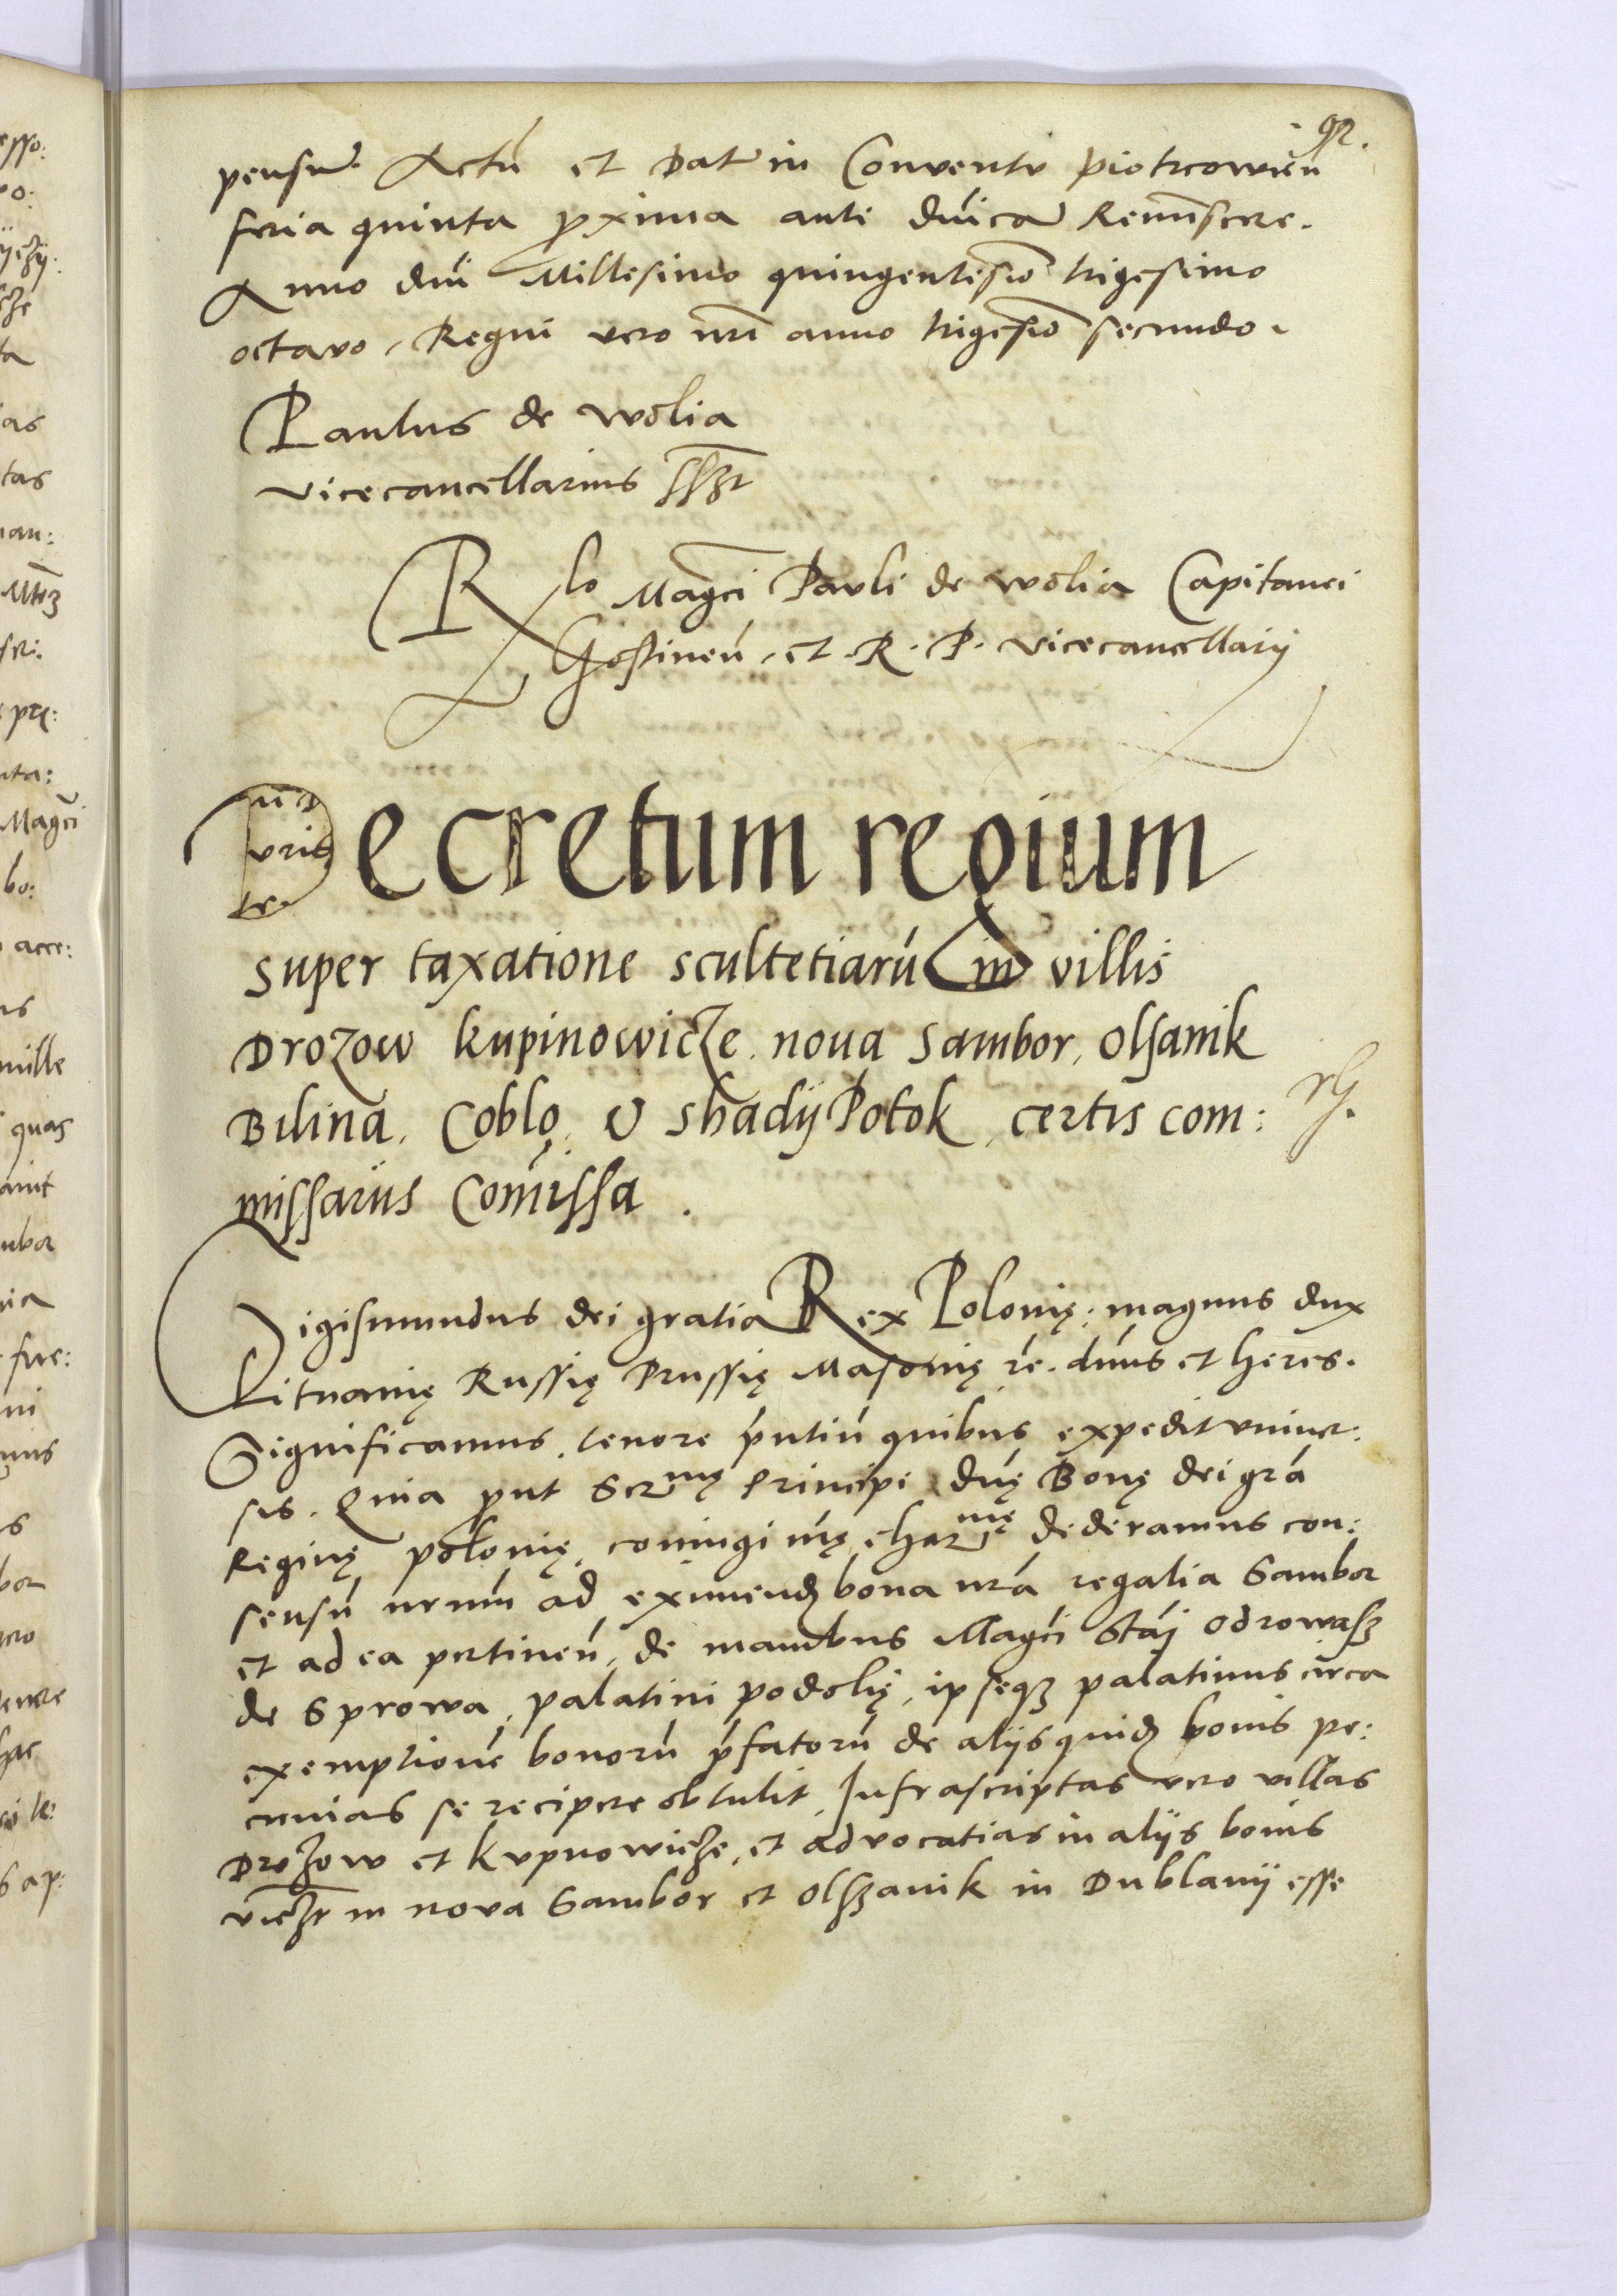 92.
pensum. Actú et Dat in Conventv piotrcowieñ
feria quinta proxima ante dnicã Reminiscere.
Anno dni Millesimo quingentesiõ trigesimo
octavo, Regni vero nri anno trigesiõ secundo.
Paulus de wolia
vicecancellarius sszt
Rlo Magci Pavli de wolia Capitanei
Gostineñ, et . R . P . vicecancellarij
Decretum regium
super taxatione scultetiarú in villis
Drozow kupinowicze . noua Sambor, Olsanik
Bilina, Coblo, v shadij Potok, certis com:
missariis Comissa .
Sigismundus dei gratia Rex Polonię, magnus dux
Lituanię Russię Prussię Masovię zc. dnns et heres.
Significamus, tenore pntiú quibus expedit vniuer:
sis. Quia prout Sermę Principi dnę Bonę dei gra
Reginę polonię, coniugi nrę charmę dederamus con:
sensú nrum ad eximend bona nra regalia Sambor
et ad ea pertineñ, de manibus Magci Stai Odrowasz
de Sprowa, palatini podolię, ipseqz palatinus circa
exemptionē bonorú pfatorú de alijs quid bonis pe:
cunias se recipere obtulit, Infrascriptas vero villas
Drozow et kvpnowicze, et advocatias in alijs bonis
viczt in nova Sambor et Olszanik in Dublanij esse